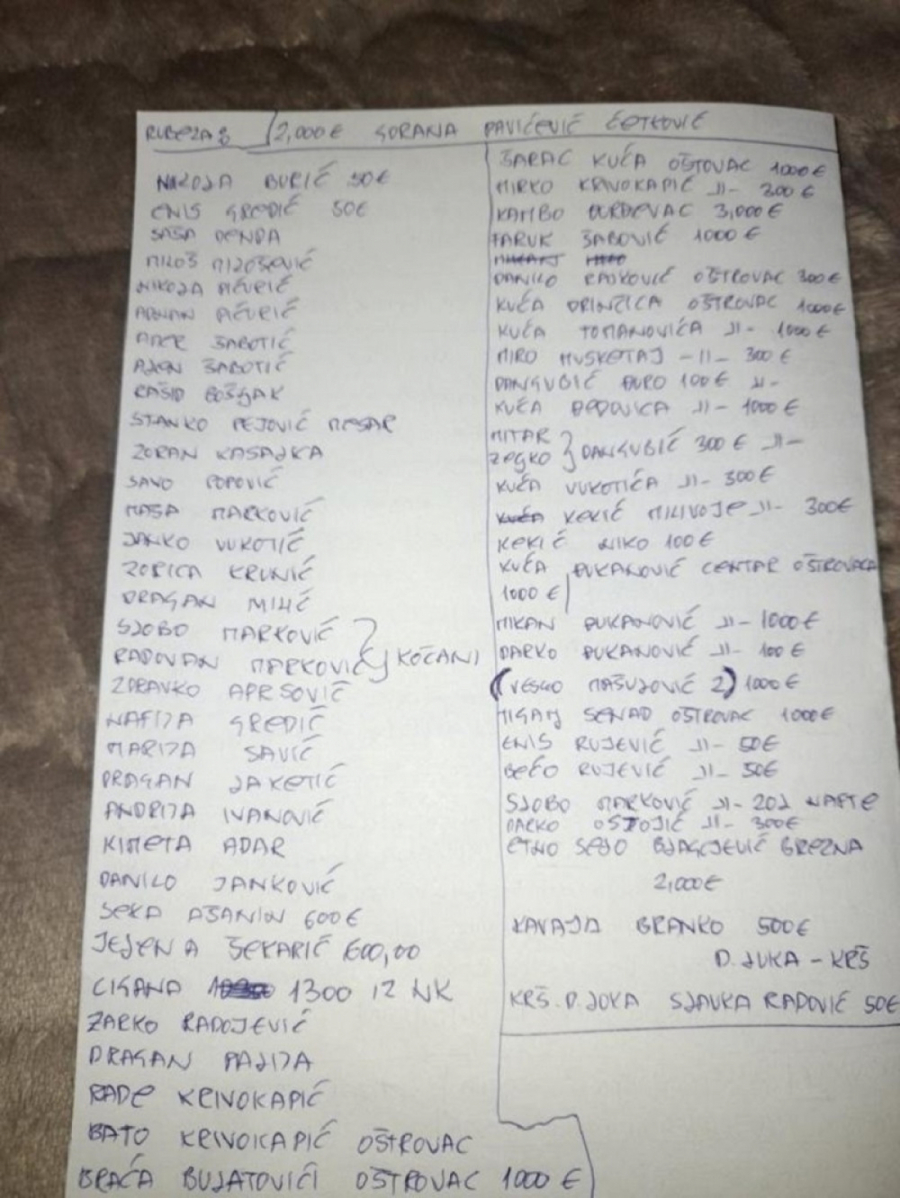 RUBEŽA 3 2,000€ GORANA PAVIĆEVIĆ ĆETKOVIĆ
NIKOLA BURIĆ 50€
ENIS GREDIĆ 50€
SAŠA DENDA
MILOŠ MILOŠEVIĆ
NIKOLA AĆURIĆ
ADNAN AĆURIĆ
AMER ŠABOTIĆ
AJEN ŠABOTIĆ
RAŠID BOŠJAK
STANKO PEJOVIĆ MESAR
ZORAN KASAJKA
SAVO POPOVIĆ
MAŠA MARKOVIĆ
JANKO VUKOTIĆ
ZORICA KRUNIĆ
DRAGAN MILIĆ
SLOBO MARKOVIĆ
RADOVAN MARKOVIĆ KOČANI
ZDRAVKO APRSOVIĆ
NAFIJA GREDIĆ
MARIJA SAVIĆ
DRAGAN JAKETIĆ
ANDRIJA IVANOVIĆ
KIMETA ADAR
DANILO JANKOVIĆ
SEKA AŠANIN 600€
JELENA ŠEKARIĆ 600,00
CIGANA 1300 IZ NK
ŽARKO RADOJEVIĆ
DRAGAN PAJIJA
RADE KRIVOKAPIĆ
BATO KRIVOKAPIĆ OŠTROVAC
BRAĆA BULATOVIĆI OŠTROVAC 1000€
ŠARAC KUĆA OŠTOVAC 1000€
MIRKO KRIVOKAPIĆ -II- 300€
KAMBO ĐURĐEVAC 3,000€
FARUK ŠABOVIĆ 1000€
DANILO RADKOVIĆ OŠTROVAC 300€
KUĆA DRINČICA OŠTROVAC 1000€
KUĆA TOMANOVIĆA -II- 1000€
MIRO MUSKETAJ -II- 300€
DANGUBIĆ ĐURO 100€ -II-
KUĆA DEDOVICA -II- 1000€
MITAR
ZEGKO DANGUBIĆ 300€ -II-
KUĆA VUKOTIĆA -II- 300€
KEKIĆ MILIVOJE -II- 300€
KEKIĆ NIKO 100€
KUĆA ĐUKANOVIĆ CENTAR OŠTROVACA
1000€
MIKAN ĐUKANOVIĆ -II- 1000€
DARKO ĐUKANOVIĆ -II- 100€
(VESKO MAŠULOVIĆ 2) 1000€
MIGAJ SENAD OŠTROVAC 1000€
ENIS RUJEVIĆ -II- 50€
BEĆO RUJEVIĆ -II- 50€
SLOBO MARKOVIĆ -II- 20L NAFTE
DARKO OSTOJIĆ -II- 300€
ETNO SELO BLAGOJEVIĆ BREZNA
2,000€
KAVAJA BRANKO 500€
D. JUKA - KRŠ
KRŠ. D. JOKA SLAVKA RADOVIĆ 50€